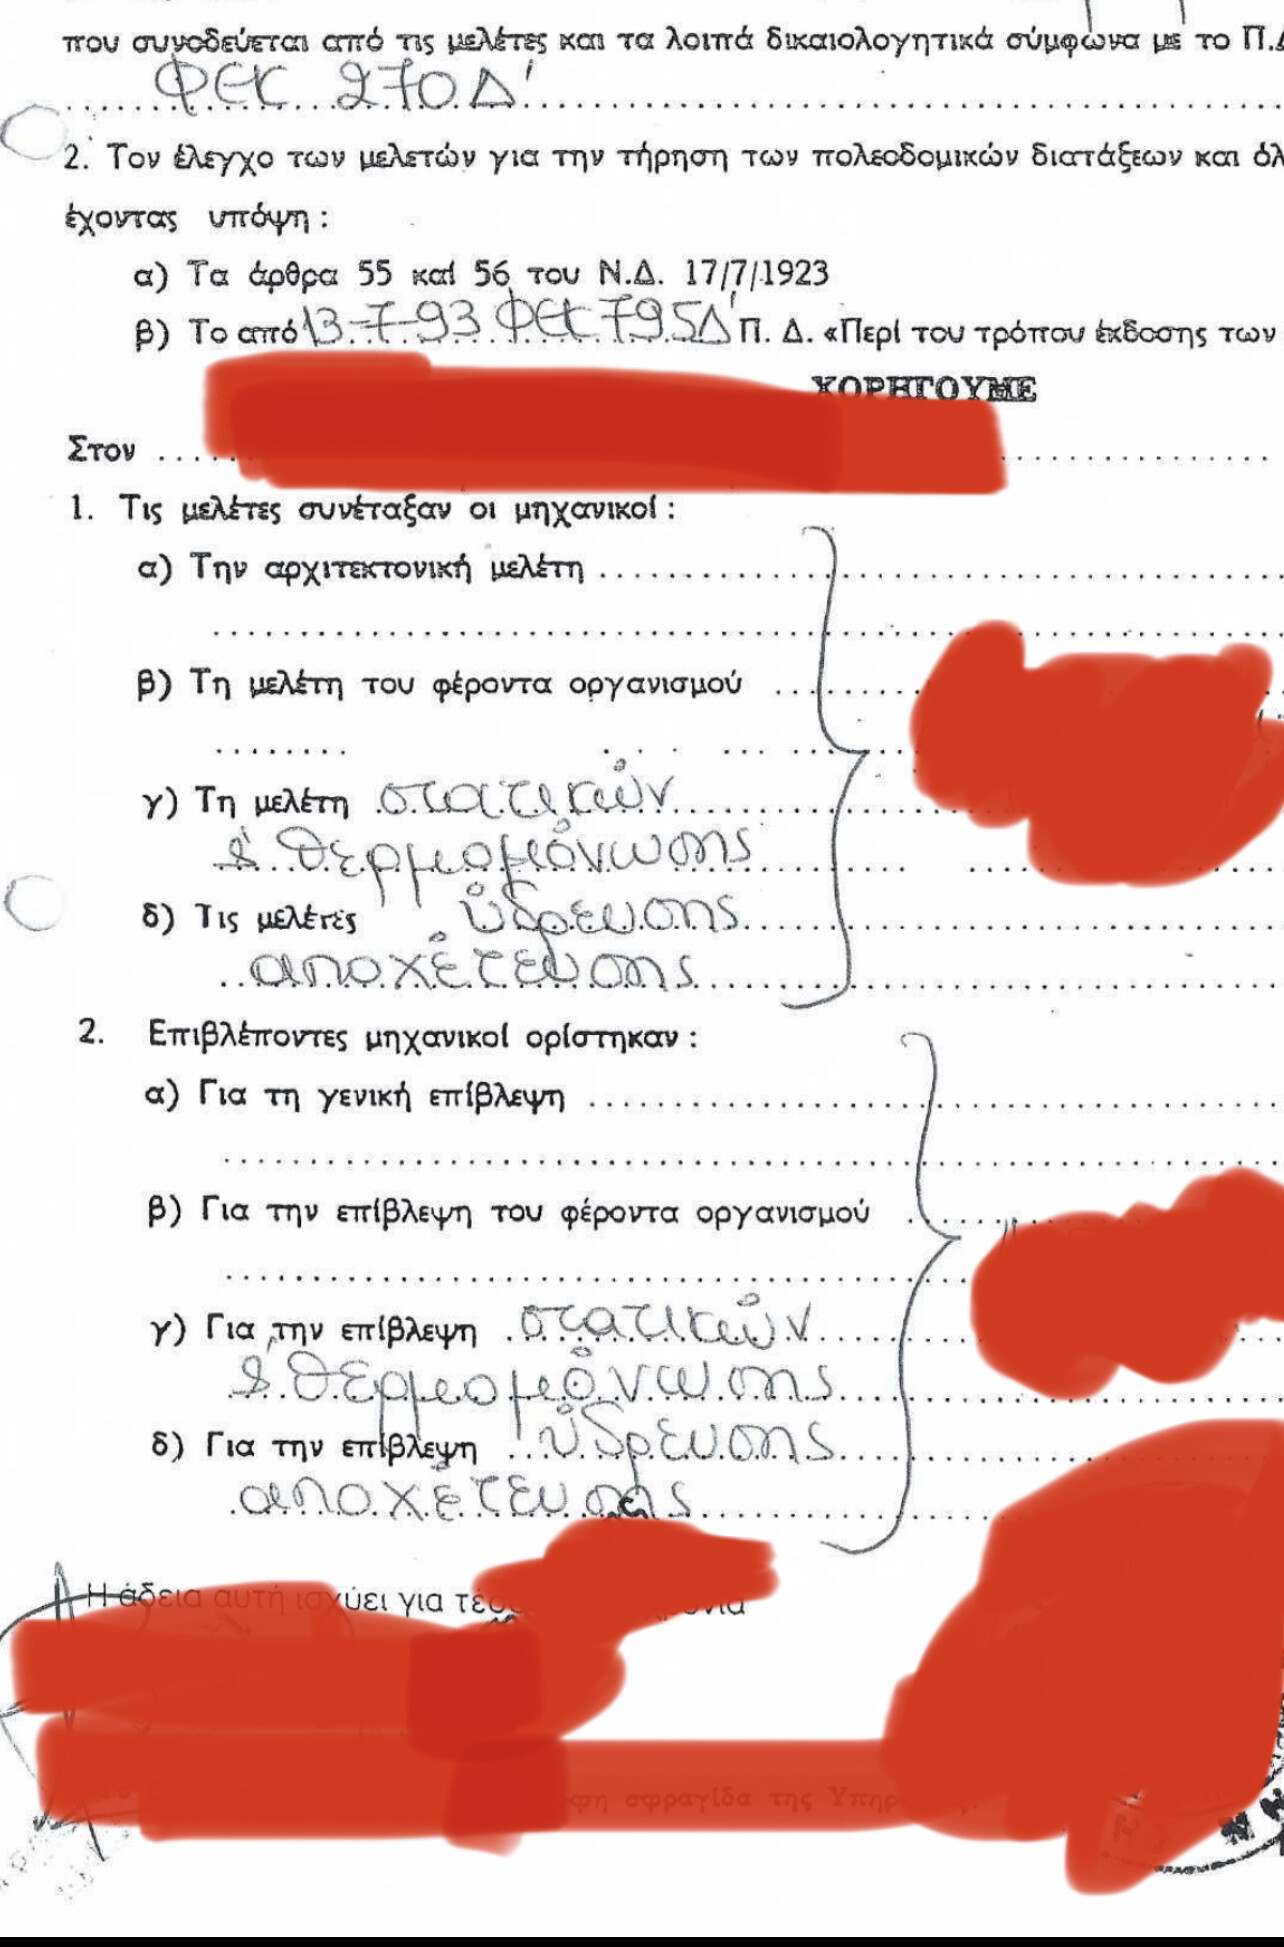 που συνοδεύεται από τις μελέτες και τα λοιπά δικαιολογητικά σύμφωνα με το Π.Δ
ΦΕΚ 270 Δ'
2. Τον έλεγχο των μελετών για την τήρηση των πολεοδομικών διατάξεων και όλ
έχοντας υπόψη :
α) Τα άρθρα 55 καί 56 του Ν.Δ. 17/7/1923
β) Το από 13-7-93 ΦΕΚ 795Δ' Π. Δ. «Περί του τρόπου έκδοσης των
ΧΟΡΗΓΟΥΜΕ
Στον
1. Τις μελέτες συνέταξαν οι μηχανικοί :
α) Την αρχιτεκτονική μελέτη
β) Τη μελέτη του φέροντα οργανισμού
γ) Τη μελέτη στατικών
& θερμομόνωσης
δ) Τις μελέτες ύδρευσης
αποχέτευσης
2. Επιβλέποντες μηχανικοί ορίστηκαν :
α) Για τη γενική επίβλεψη
β) Για την επίβλεψη του φέροντα οργανισμού
γ) Για την επίβλεψη στατικών
& θερμομόνωσης
δ) Για την επίβλεψη ύδρευσης
αποχέτευσης
Η άδεια αυτή ισχύει για
σφραγίδα της